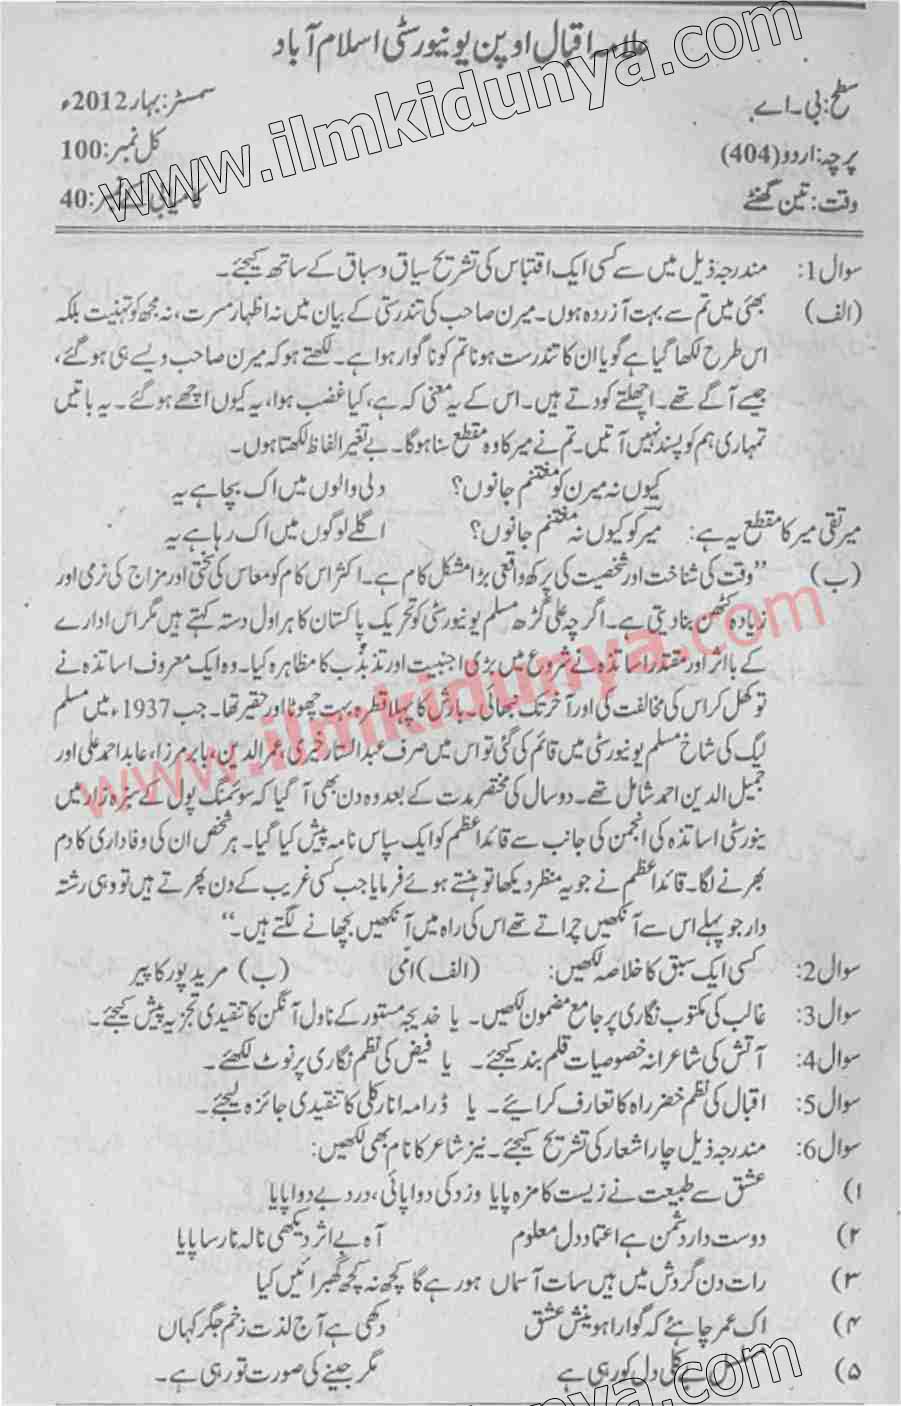 علامہ اقبال اوپن یونیورسٹی اسلام آباد
سطح: بی۔اے سمسٹر: بہار 2012ء
پرچہ: اردو (404) کل نمبر: 100
وقت: تین گھنٹے کامیابی کے نمبر: 40
www.ilmkidunya.com
سوال 1: مندرجہ ذیل میں سے کسی ایک اقتباس کی تشریح سیاق و سباق کے ساتھ کیجئے۔
(الف) بھئی میں تم سے بہت آزردہ ہوں۔ میرن صاحب کی تندرستی کے بیان میں نہ اظہار مسرت، نہ مجھ کو تہنیت بلکہ
اس طرح لکھا گیا ہے گویا ان کا تندرست ہونا تم کو ناگوار ہوا ہے۔ لکھتے ہو کہ میرن صاحب ویسے ہی ہو گئے،
جیسے آگے تھے۔ اچھلتے کودتے ہیں۔ اس کے یہ معنی کہ ہے، کیا غضب ہوا، یہ کیوں اچھے ہو گئے۔ یہ باتیں
تمہاری ہم کو پسند نہیں آتیں۔ تم نے میر کا وہ مقطع سنا ہوگا۔ بے تغیر الفاظ لکھتا ہوں۔
کیوں نہ میرن کو مغتنم جانوں؟ دلی والوں میں اک بچا ہے یہ
میر تقی میر کا مقطع یہ ہے: میر کو کیوں نہ مغتنم جانوں؟ اگلے لوگوں میں اک رہا ہے یہ
(ب) "وقت کی شناخت اور شخصیت کی پرکھ واقعی بڑا مشکل کام ہے۔ اکثر اس کام کو معاس کی سختی اور مزاج کی نرمی اور
زیادہ کٹھن بنا دیتی ہے۔ اگرچہ علی گڑھ مسلم یونیورسٹی کو تحریک پاکستان کا ہر اول دستہ کہتے ہیں مگر اس ادارے
کے بااثر اور مقتدر اساتذہ نے شروع میں بڑی اجنبیت اور تذبذب کا مظاہرہ کیا۔ وہ ایک معروف اساتذہ نے
تو کھل کر اس کی مخالفت کی اور آخر تک نبھائی۔ بارش کا پہلا قطرہ بہت چھوٹا اور حقیر تھا۔ جب 1937ء میں مسلم
لیگ کی شاخ مسلم یونیورسٹی میں قائم کی گئی تو اس میں صرف عبدالستار خیری، عمر الدین، بابر مرزا، عابد احمد علی اور
جمیل الدین احمد شامل تھے۔ دو سال کی مختصر مدت کے بعد وہ دن بھی آ گیا کہ سوئمنگ پول کے سبزہ زار میں
ینورسٹی اساتذہ کی انجمن کی جانب سے قائداعظم کو ایک سپاس نامہ پیش کیا گیا۔ ہر شخص ان کی وفاداری کا دم
بھرنے لگا۔ قائداعظم نے جو یہ منظر دیکھا تو ہنستے ہوئے فرمایا جب کسی غریب کے دن پھرتے ہیں تو وہی رشتہ
دار جو پہلے اس سے آنکھیں چراتے تھے اس کی راہ میں آنکھیں بچھانے لگتے ہیں۔"
www.ilmkidunya.com
سوال 2: کسی ایک سبق کا خلاصہ لکھیں: (الف) امی (ب) مرید پور کا پیر
سوال 3: غالب کی مکتوب نگاری پر جامع مضمون لکھیں۔ یا خدیجہ مستور کے ناول آنگن کا تنقیدی تجزیہ پیش کیجئے۔
سوال 4: آتش کی شاعرانہ خصوصیات قلم بند کیجئے۔ یا فیض کی نظم نگاری پر نوٹ لکھئے۔
سوال 5: اقبال کی نظم خضر راہ کا تعارف کرائیے۔ یا ڈرامہ انارکلی کا تنقیدی جائزہ لیجئے۔
سوال 6: مندرجہ ذیل چار اشعار کی تشریح کیجئے۔ نیز شاعر کا نام بھی لکھیں:
۱) عشق سے طبیعت نے زیست کا مزہ پایا وزد کی دوا پائی، درد بے دوا پایا
۲) دوست دار دشمن ہے اعتماد دل معلوم آہ بے اثر دیکھی نالہ نارسا پایا
۳) رات دن گردش میں ہیں سات آسماں ہو رہے گا کچھ نہ کچھ گھبرائیں کیا
۴) اک عمر چاہئے کہ گوارا ہو نیش عشق دکھی ہے آج لذت زخم جگر کہاں
۵) مسلسل بے کلی دل کو رہی ہے مگر جینے کی صورت تو رہی ہے۔